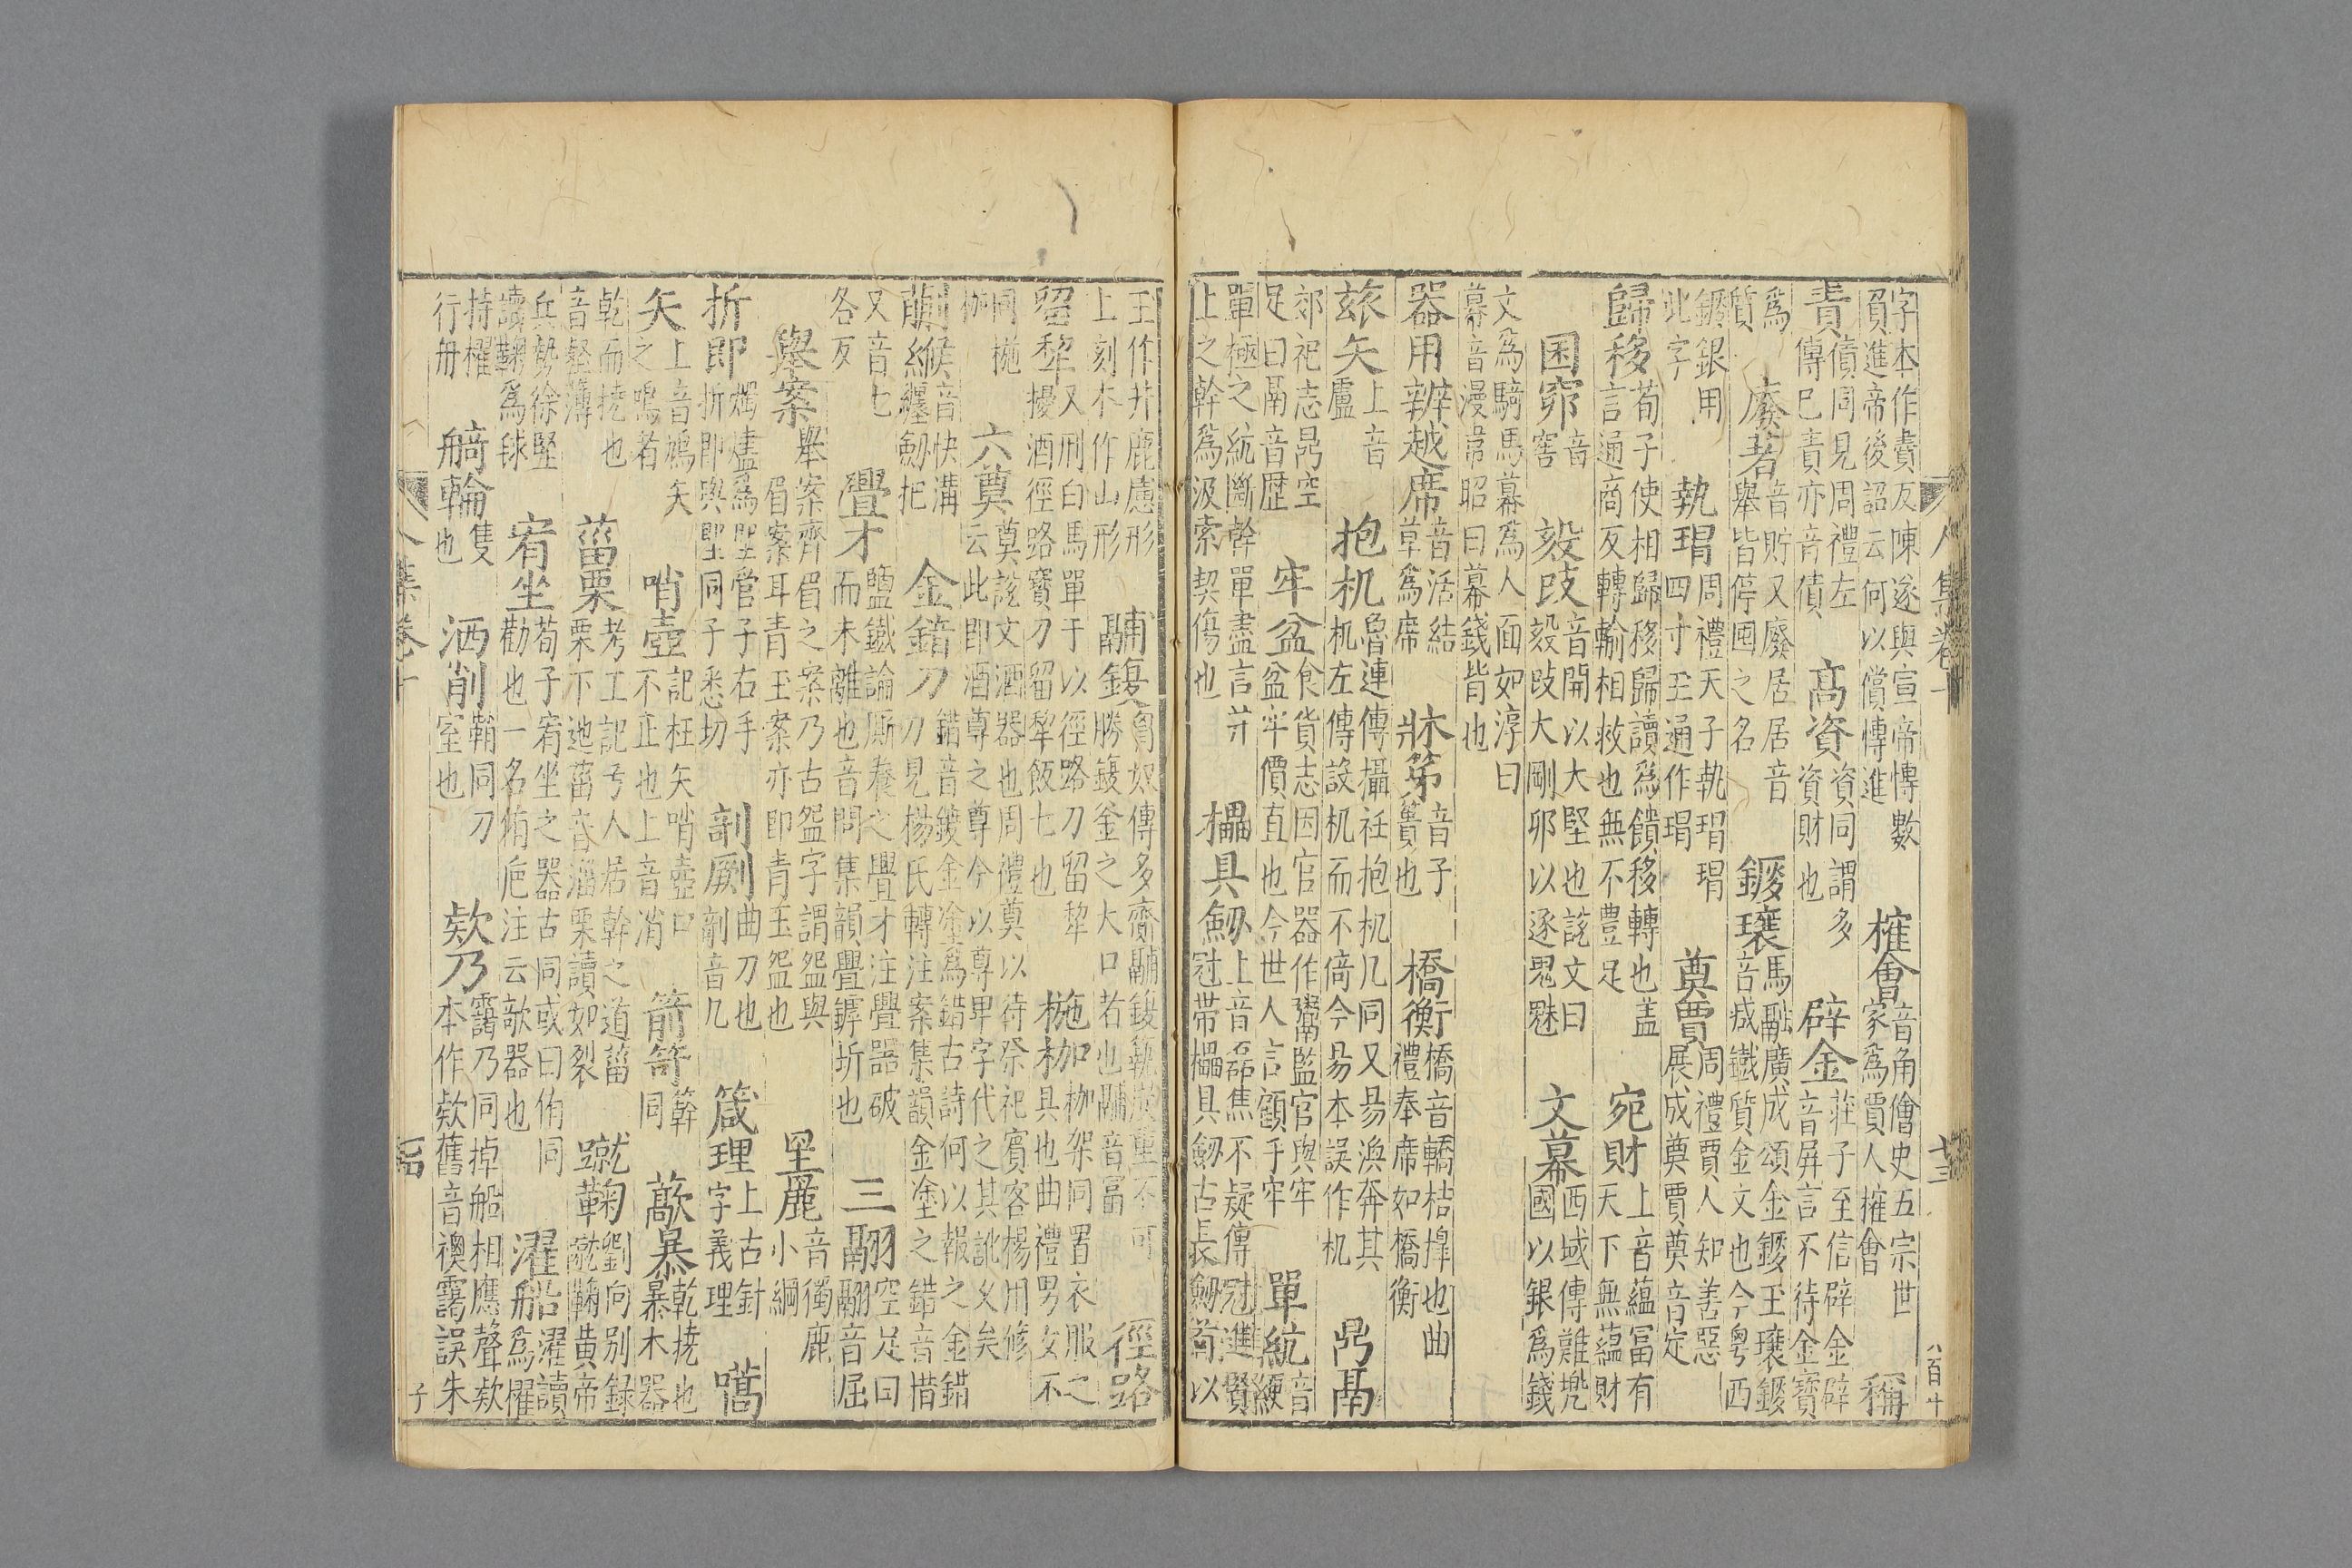 字本作賮反陳遂與宣帝愽數
負進帝後詔云何以償愽進
榷會
音角儈史五宗世
家爲賈人搉會
稱
責
債同見周禮左
傳已責亦音債
高資
資同謂多
資財也
辟金
莊子至信辟金辟
音屏言不待金寶
爲
質
廢著
音貯又廢居居音
舉皆停囤之名
鍐瓖
馬融廣成頌金鍐玉瓖鍐
音烖鐵質金文也今粤西
鍐銀用
此字
執瑁
周禮天子執瑁瑁
四寸玉通作珺
奠賈
周禮賈人知善惡
展成奠賈奠音定
歸移
荀子使相歸移歸讀爲饋移轉也蓋
言通商反轉輸相救也無不豐足
宛財
上音蘊冨有
天下無蘊財
囷窌
音
窖
毅㱾
音開以大堅也說文曰
毅㱾大剛卯以逐鬼魅
文幕
西域傳難兠
國以銀爲錢
文爲騎馬幕爲人面如淳曰
幕音漫韋昭曰幕錢背也
器用
辨越席
音活結
草爲席
牀笫
音子
簀也
橋衡
橋音轎桔橰也曲
禮奉席如橋衡
玈矢
上音
盧
抱机
魯連傳攝衽抱机几同又昜渙奔其
机左傳設机而不倚今昜本誤作机
鼎鬲
郊祀志鼎空
足曰鬲音歴
牢盆
食貨志因官器作鬻監官與牢
盆盆牢價直也今世人言顧手牢
單紞
音
綆
單極之紞斷幹單盡言井
上之幹爲汲索契傷也
櫑具劒
上音磊焦不疑傳冠進賢
冠帶櫑具劒古長劒首以
王作井鹿慮形
上刻木作山形
鬴鍑
匈奴傳多齎鬴鍑
勝鍑釜之大口若也鬴音冨
徑路
留犂
又刑白馬單于以徑路刀留犂
擾酒徑路寶刀留犂飯七也
椸枷
枷架同置衣服之
具也曲禮男女不
同椸
枷
六奠
奠說文酒器也周禮奠以待祭祀賓客楊用修
云此即酒尊之尊今以尊卑字代之其訛乂矣
蒯緱
音快溝
纏劒把
金錯刀
錯音鍍金塗爲錯古詩何以報之金錯
刀見楊氏轉注案集韻金塗之錯音措
又音七
各反
舋才
鹽鐵論厮養之舋才注舋器破
而未離也音問集韻舋罅坼也
三翮
空足曰
翮音屈
舉案
舉案齊眉之案乃古盌字謂盌與
眉案耳青玉案亦即青玉盌也
罜麗
音獨鹿
小綱
折即
燭燼爲堲管子右手
折即與堲同子悉切
剞劂
曲刀也
剞音几
箴理
上古針
字義理
嚆
矢
上音鴞矢
之鳴者
哨壺
記枉矢哨壺口
不正也上音消
箭笴
簳
同
藃暴
乾撓也
暴木器
乾而撓也
音磬薄
菑栗
考工記弓人居幹之道菑
栗不迆菑音淄栗讀如裂
蹴鞠
劉向别録
蹵鞠黄帝
兵勢徐堅
讀鞠爲毬
宥坐
荀子宥坐之器古同或曰侑同
勸也一名侑巵注云欹器也
濯船
濯讀
爲櫂
持櫂
行册
觭輪
隻
也
洒削
鞘同刀
室也
欸乃
靄乃同掉船相應聲欸
本作欸舊音襖靄誤朱